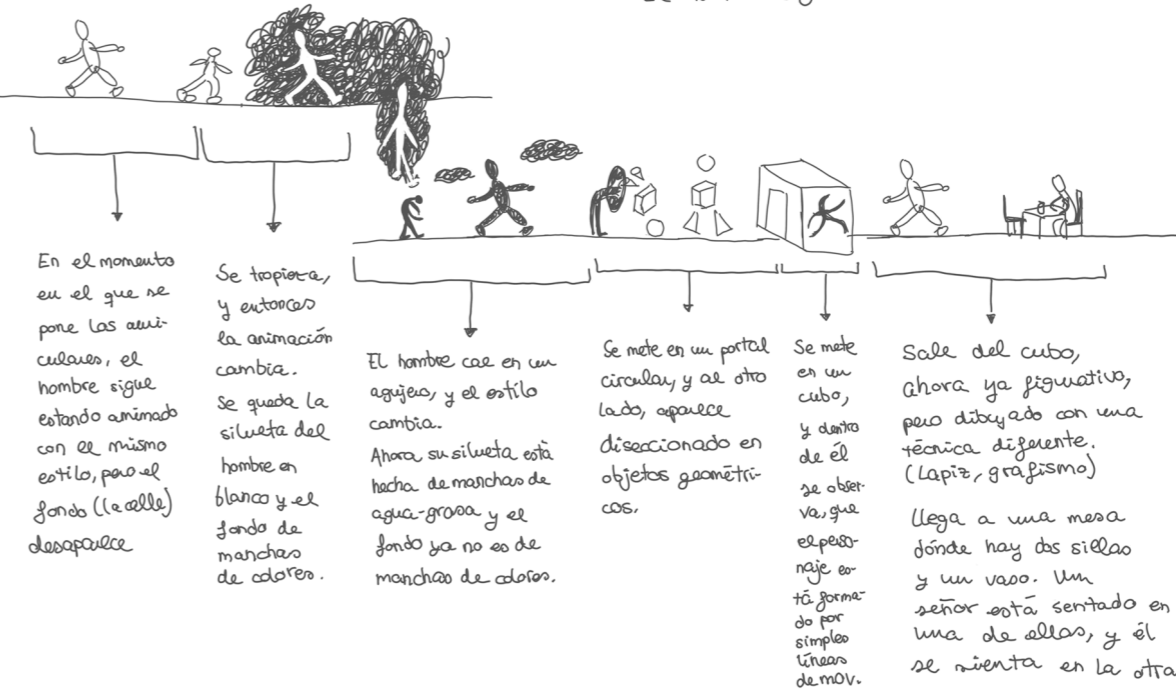 En el momento
en el que se
pone los auri-
culares, el
hombre sigue
estando animado
con el mismo
estilo, pero el
fondo (la calle)
desaparece
Se tropieza,
y entonces
la animación
cambia.
Se queda la
silueta del
hombre en
blanco y el
fondo de
manchas
de colores.
El hombre cae en un
agujero, y el estilo
cambia.
Ahora su silueta está
hecha de manchas de
agua-grasa y el
fondo ya no es de
manchas de colores.
Se mete en un portal
circular, y al otro
lado, aparece
diseccionado en
objetos geométri-
cos.
Se mete
en un
cubo,
y dentro
de él
se obser-
va, que
el perso-
naje es-
tá forma-
do por
simples
líneas
de mov.
Sale del cubo,
ahora ya figurativo,
pero dibujado con una
técnica diferente.
(Lapiz, grafismo)
Llega a una mesa
dónde hay dos sillas
y un vaso. Un
señor está sentado en
una de ellas, y él
se sienta en la otra